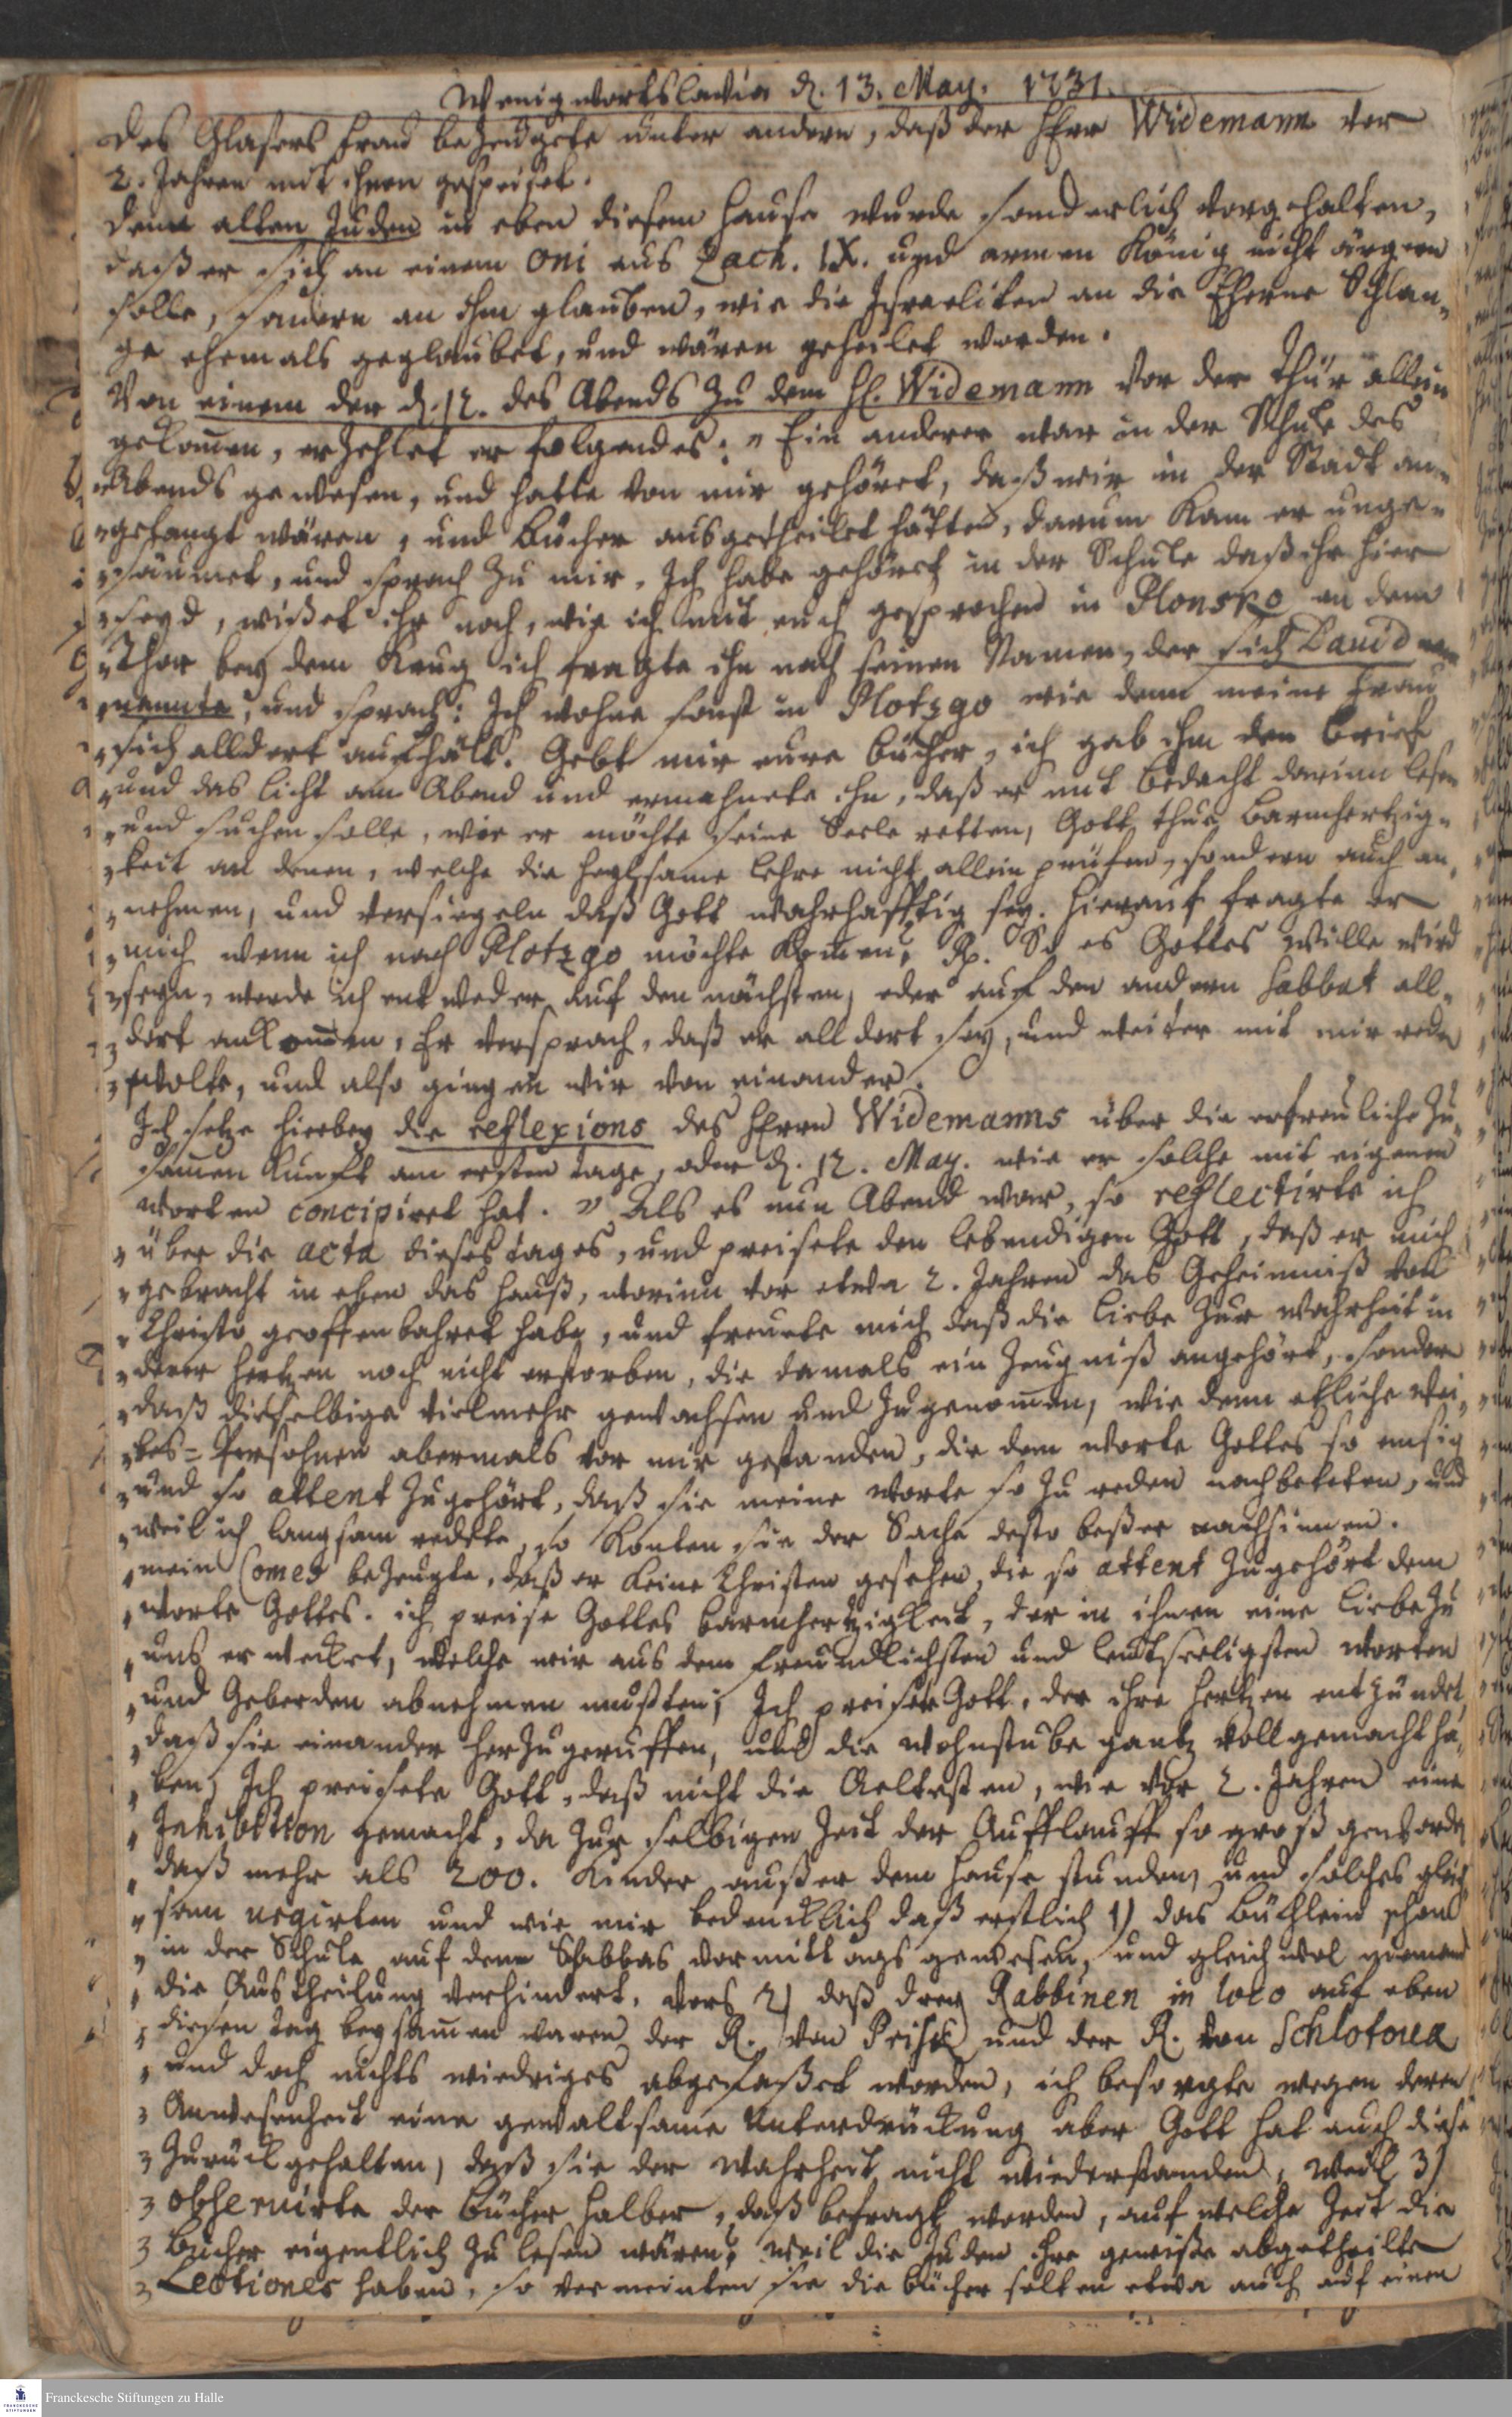 Wenigwortslavia d. 13. May. 1731.
Des Glasers Frau bezeugete unter andern, daß der Herr Widemann vor
2. Jahren mit ihnen gespeiset.
Dem alten Juden in eben diesem Hause wurde sonderlich vorgehalten,
daß er sich an einem Oni aus Zach. IX. und armen König nicht ärgern
solle, sondern an ihm glauben, wie die Israeliten an die Eherne Schlan-
ge ehemals geglaubet, und wären geheilet worden.
Von einem der d. 12. des Abends zu dem H. Widemann vor der Thür allein
gekommen, erzehlet er folgendes: „Ein anderer war in der Schule des
„Abends gewesen, und hatte von mir gehöret, daß wir in der Stadt an-
„gelangt wären, und Bücher ausgetheilet hätten, darum kam er unge-
„säumet, und sprach zu mir. Ich habe gehöret in der Schule daß ihr hier
„seyd, wißet ihr noch, wie ich mit euch gesprochen in Plonsko an dem
„Thor bey dem Krug ich fragte ihn nach seinen Namen, der sich David
„nennte, und sprach: Ich wohne sonst in Plotzgo wie denn meine Frau
„sich alldort aufhält. Gebt mir eure Bücher, ich gab ihm den Brief
„und das Licht am Abend und ermahnete ihn, daß er mit Bedacht darinn lesen
„und suchen solle, wie er möchte seine Seele retten, Gott thue Barmhertzig-
„keit an denen, welche die heylsame Lehre nicht allein prüfen, sondern auch an-
„nehmen, und versiegeln daß Gott wahrhafftig sey. Hierauf fragte er
„mich wenn ich nach Plotzgo möchte kommen? Rp. So es Gottes Wille wird
„seyn, werde ich entweder auf den nächsten, oder auf den andern Sabbat all-
„dort ankommen, Er versprach, daß er alldort sey, und weiter mit mir reden
„wolte, und also gingen wir von einander.
Ich setze hierbey die reflexions des Herrn Widemanns über die erfreuliche Zu-
sammenkunft am ersten Tage, oder d. 12. May. wie er solche mit eigenen
Worten concipiret hat. „Als es nun Abend war, so reflectirte ich
„über die acta dieses Tages, und preisete den lebendigen Gott, daß er mich
„gebracht in eben das Hauß, worinn vor etwa 2. Jahren das Geheimniß von
„Christo geoffenbahret habe, und freuete mich daß die Liebe zur Wahrheit in
„derer Hertzen noch nicht erstorben, die damals ein Zeugniß angehört, sondern
„daß dieselbige vielmehr gewachsen und zugenommen, wie denn etliche Wei-
„bes-Persohnen abermals vor mir gestanden, die dem Worte Gottes so emsig
„und so attent zugehört, daß sie meine Worte so zu reden nachbeteten, und
„weil ich langsam redete, so konten sie der Sache desto beßer nachsinnen.
„mein Comes bezeugte, daß er keine Christen gesehen, die so attent zugehört dem
„Worte Gottes. ich preise Gottes Barmhertzigkeit, der in ihnen eine Liebe zu
„uns erwecket, welche wir aus dem freundlichsten und leutseeligsten Worten
„und Geberden abnehmen mußten; Ich preisete Gott, der ihre Hertzen entzündet,
„daß sie einander herzugeruffen, und die Wohnstube gantz voll gemacht ha-
„ben; Ich preisete Gott, daß nicht die Aeltesten, wie vor 2. Jahren eine
„Inhibition gemacht, da zur selbigen Zeit der Aufflauff so groß geworden
„daß mehr als 200. Kinder außer dem Hause stunden, und solches gleich-
„sam negirten und wie mir bedencklich daß erstlich 1) das Büchlein schon
„in der Schule auf dem Schabbas vormittags gewesen, und gleichwol niemand
„die Austheilung verhindert, vors 2) daß drey Rabbinen in loco auf eben
„diesen Tag beysammen waren der R. von und der R. von Schlotoua
„und doch nichts wiedriges abgefaßet worden, ich besorgte wegen deren
„Anwesenheit eine gewaltsame Unterdrückung aber Gott hat auch diese
„zurückgehalten, daß sie der Wahrheit nicht wiederstanden, 3)
„observirte der Bücher halber, daß befragt worden, auf welche Zeit die
„Bücher eigentlich zu lesen wären; weil die Juden ihre gewiße abgetheilte
„Lectiones haben, so vermeinten sie die Bücher solten etwa auch auf einen
Franckesche Stiftungen zu Halle